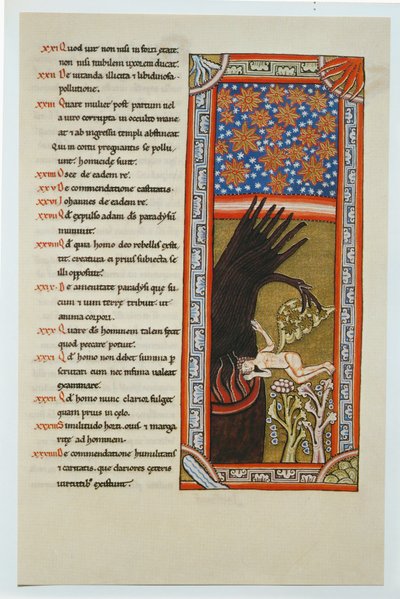 xxi Quod uir non nisi in forti etate
non nisi nubilem uxorem ducat.
xxii De uitanda illicita & libidinosa
pollutione.
xxiii Quare mulier post partum uel
a uiro corrupta in occulto mane
at & ab ingressu templi abstineat
Qui in coitu pregnantis se pollu
unt. homicide sunt.
xxiiii Osee de eadem re.
xxv De commendatione castitatis.
xxvi Johannes de eadem re.
xxvii Qd expulso adam ds paradysum
muniuit.
xxviii Qd quia homo deo rebellis exsti
tit. creatura ei prius subiecta se
illi opposuit.
xxix De amenitate paradysi que su
cum & uim terre tribuit. ut
anima corpori.
xxx Quare ds hominem talem fecit
quod peccare potuit.
xxxi Qd homo non debet summa per
scrutari cum nec infima ualeat
examinare.
xxxii Qd homo nunc clarior fulget
quam prius in celo.
xxxiii Similitudo horti. ouis & marga
rite ad hominem.
xxxiiii De commendatione humilitatis
& caritatis. que clariores ceteris
uirtutib' existunt.